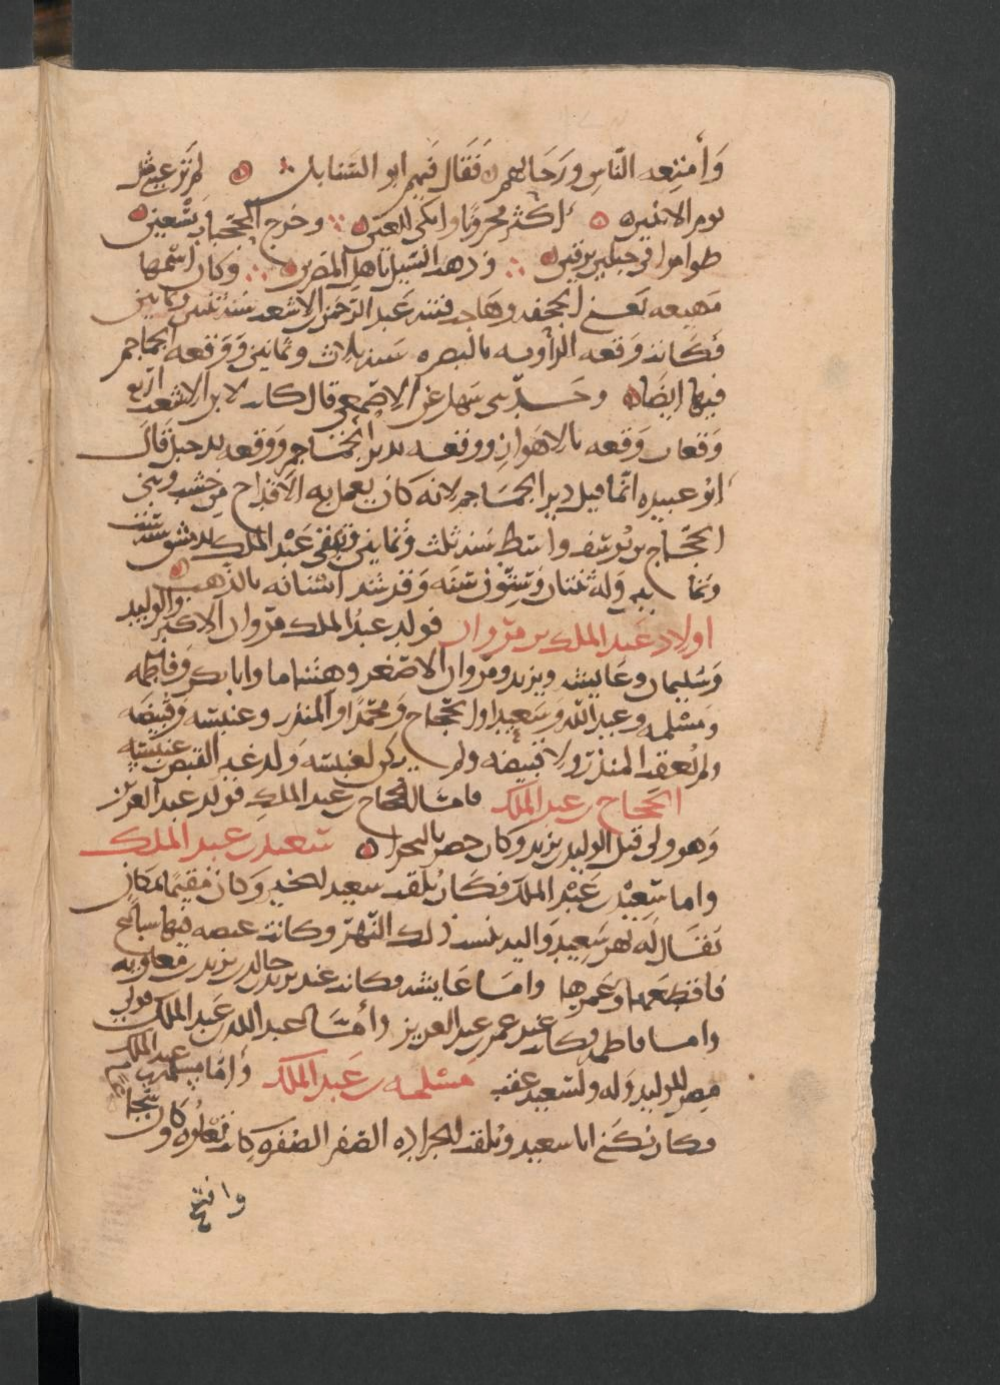 وَأمتعه النّاس ورَحالهم فَقَال فيهم ابو السَّنابل لم تر عيني مثل
يوم الاثنين اكثر محزونًا وابكى للعين وخرج المخبّات يسْعين
طواهرا في جبلين يرقين وذهب السّيل باهل المصرين وكان اسمها
مَهيعه يَعني الجحفه وهاجت فتنه عَبد الرّحمن الاشعث سنه ثنتين وثمانين
فكانت وَقعه الزّاويه بالبصره سَنه ثلاث وثمانين وَوَقعه الجماجم
فيها ايضَا وحَدّثني سَهل عَن الاصْمعي قال كان لابن الاشعث اربع
وَقعات وَقعه بالاهَواز ووقعه بدير الجمَاجم وَوقعه بدجيل قالَ
ابُو عبيده انّما قيل دير الجمَاجم لانه كان يعمل به الاقداح من خشب وبنى
الحجّاج بن يوسف واسط سَنه ثلث وَثمانين وتوفى عَبْد الملك بدمشق سنه ست
وثمانين وله ثنتان وَستّون سَنَه وَقد شد اسْنانه بالذّهب
اولاد عَبد الملك بن مرْوان فولد عبْد الملك مرْوان الاكبر والوليد
وَسُليمان وعَايشه ويزيد ومرْوان الاصْغر وهشاما وابا بكر وَفاطمه
ومسْلمه وعبد الله وسَعيدا والحجّاج ومحمّدًا والمنذر وعنبسه وقبيصَه
ولم يُعقب المنذر ولا قبيصه ولم يكن لعنبسه وَلد غير الفيض بن عنبسه
الحجاج بن عبد الملك فامّا الحجاج بن عبد الملك فولد عبد العزيز
وَهو ولى قتل الوليد بن يزيد وكان حصره بالبحرا سعيد بن عبد الملك
واما سَعِيْد بن عَبْد الملك فكَان يُلقب سعيد الخير وَكان مقيمًا بمكان
يقَال له نهر سَعِيد وَاليه ينسب ذلك النّهر وكانت غيضه فيها سباع
فاقطعها وعَمرها وامَّا عَايشه فكانت عند يزيد بن خالد بن يزيد بن معاويه
وامَّا فاطمه فكانت عند عمر بن عبد العزيز وأمَّا عبد الله بن عَبد الملك فولي
مِصر للوليد وَله ولسَعيد عَقب مَسْلمه بن عَبد الملك وَامّا مسلمه بن عبد الملك
فكان يُكَنى ابا سعيد ويُلقب الجراده الصّفرا لصُفره كانت تعْلوه وكان شجاعا
وافتتح